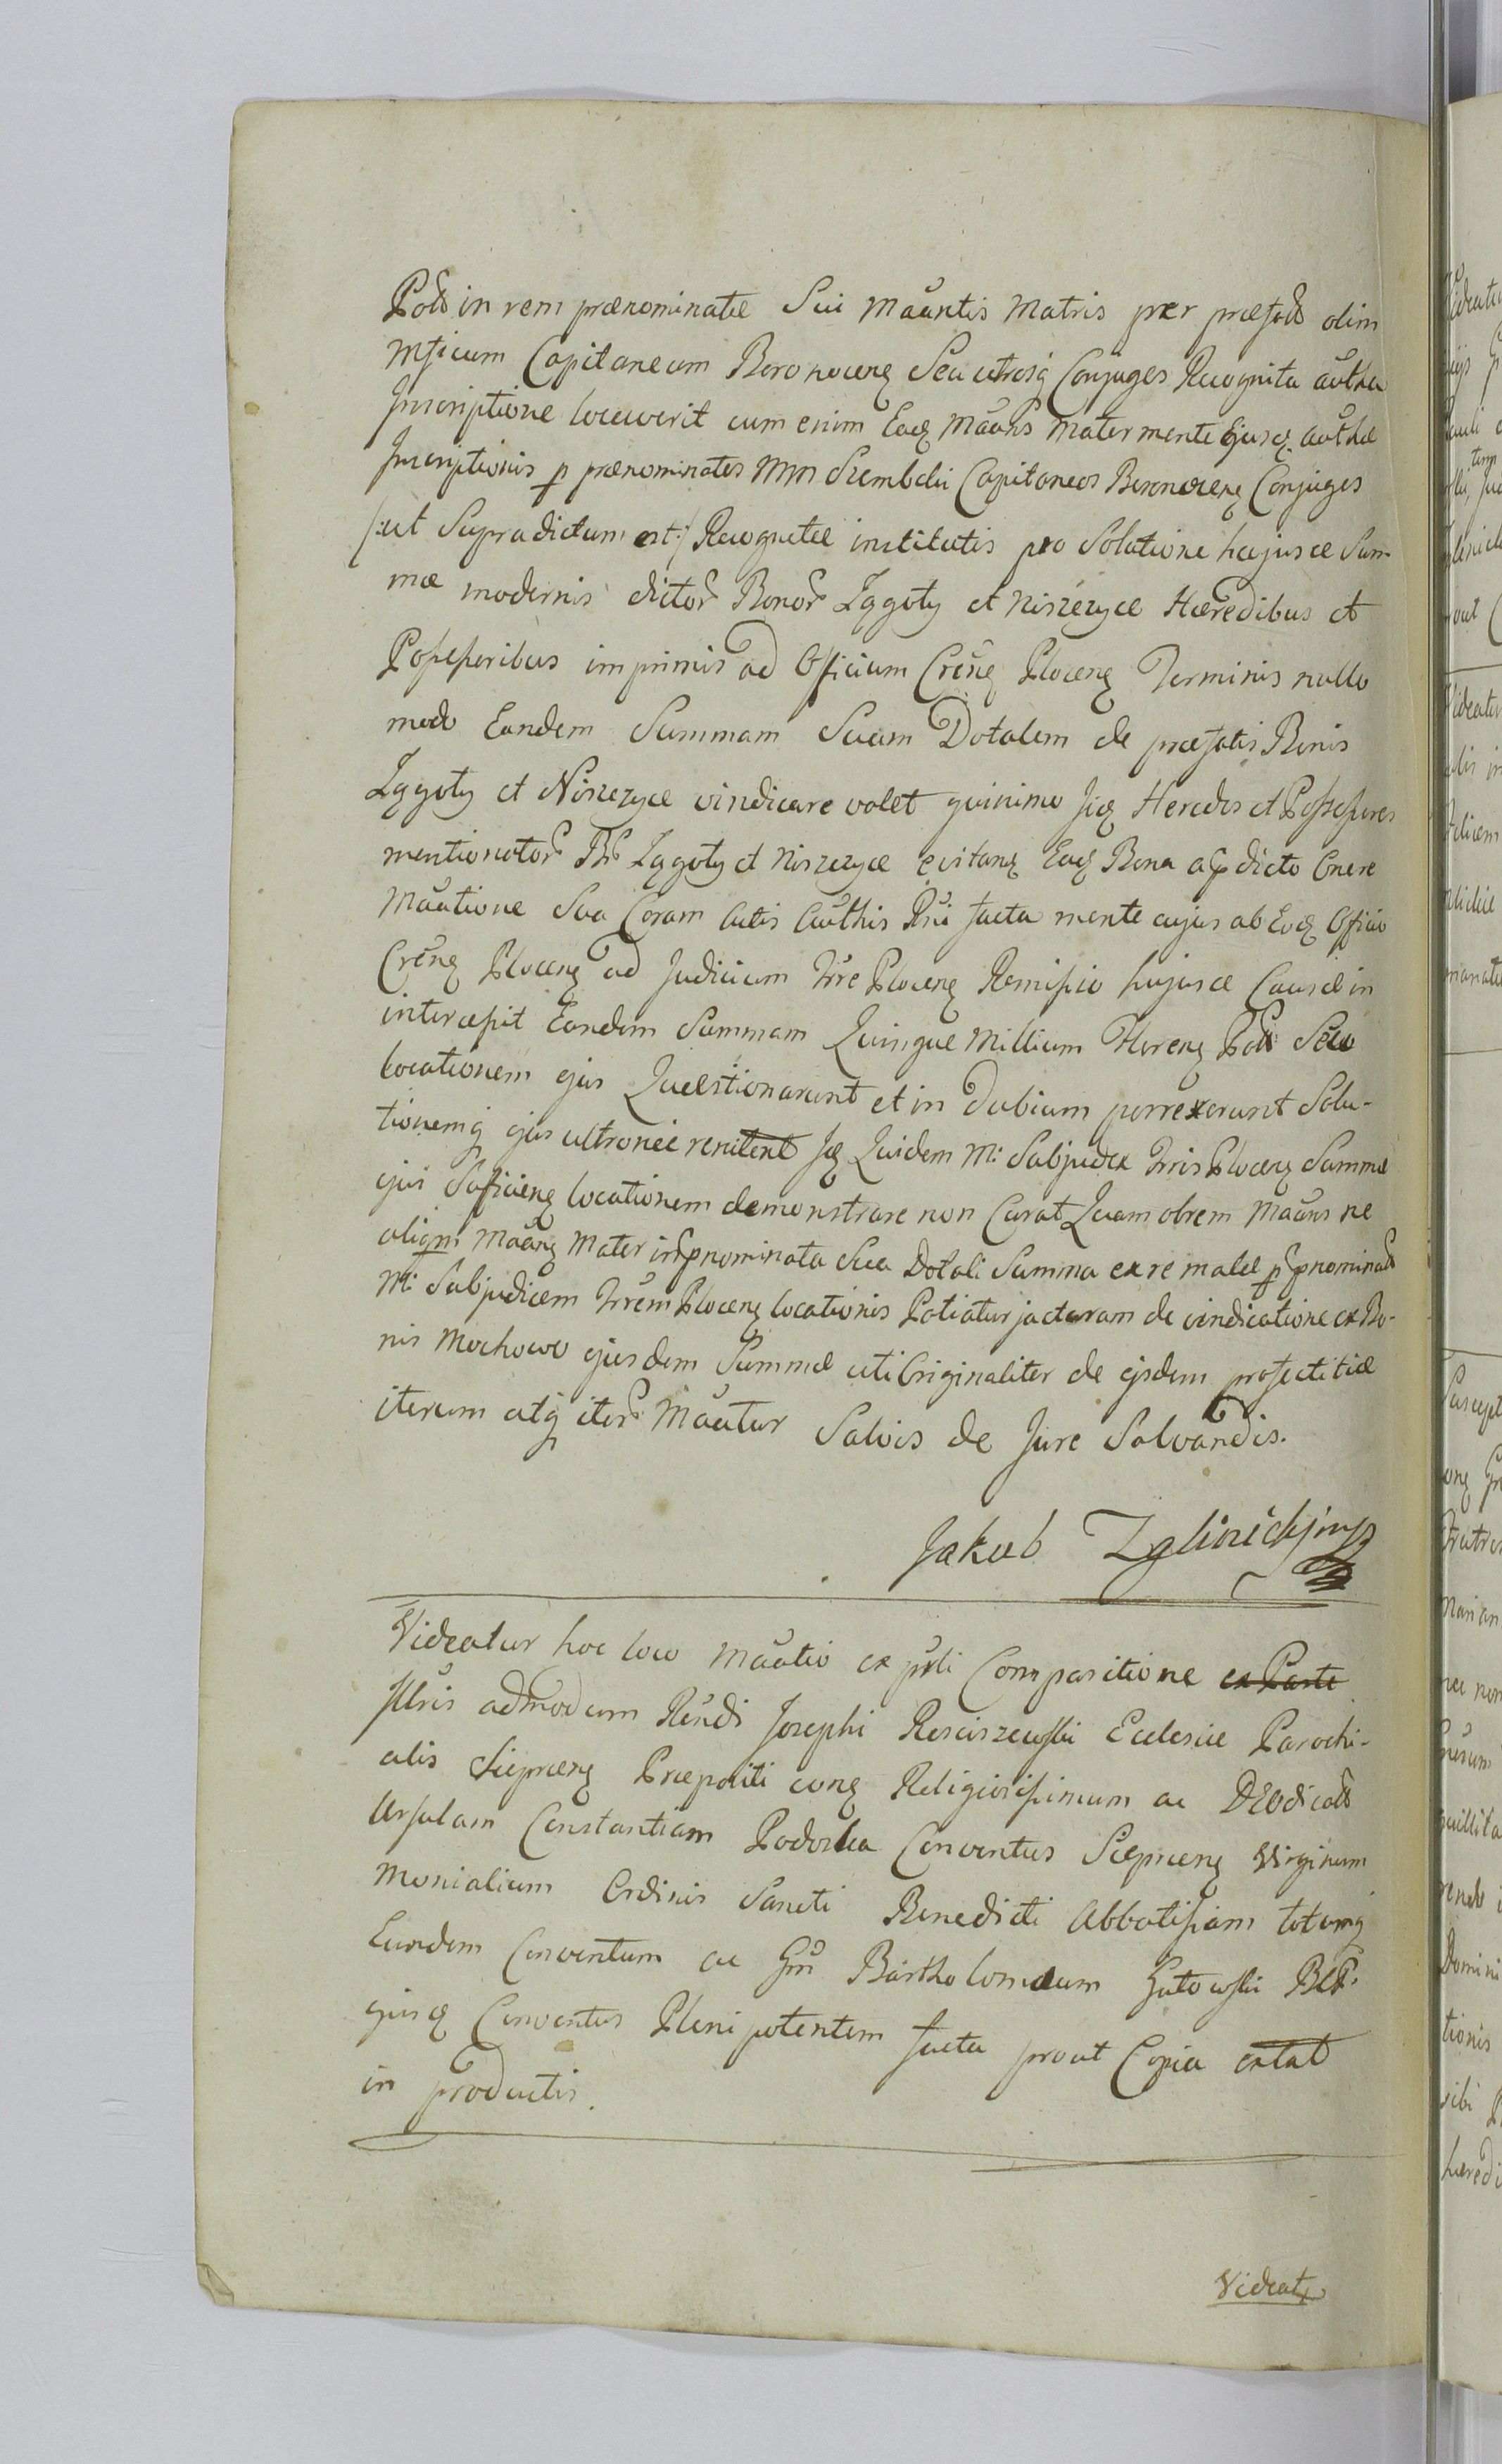 Polo in rem prænominatæ Sui Mãntis Matris per præfatō olim
Mficum Capitaneum Boronocenę Seu utrosq Conjuges Recognita autha
Inscriptione locaverit cum enim Eadę Mãns Mater mente Ejusdę authæ
Inscriptionis p prænominatos MM Szembeki Capitaneos Boronocenę Conjuges
/:ut Supradictum est:/ Recognitæ institutis pro Solutione hujusce Sum-
mæ modernis dictoř Bonoř Ląguty et Niszczyce Hæredibus et
Possessoribus imprimis ad Officium Crěnę Plocenę Terminis nullo
modo Eandem Summam Suam Dotalem de præfatis Bonis
Ląguty et Niszczyce vindicare valet quinimo Iię Heredes et Possessores
mentionatoř Ląguty et Niszczyce evitanę Eadę Bona a pdicto Onere
Mãtione Sua Coram Actis authis facta mente cujus ab Eodę Officio
Crěnę Plocenę ad Judicium Trre Plocenę Remissio hujusce Causæ in
intercessit Eandem Summam Quinque Millium Florenę Poli Seu
locationem ejus Quæstionarunt et in Dubium porrexerunt Solu-
tionemq ejus ultronee renitent Quidem M: Subjudex Trris Plocenę Summæ
ejus Soficienę locationem demonstrare non Curat Quamobrem Mãns ne
aliqm Mãnę Mater in pnominata Sua Dotali Summa ex re male p pnominatō
M: Subjudicem Trrem Plocenę locationis Patiatur jacturam de vindicatione ex Bo-
nis Mochowo ejusdem Summæ uti Originaliter de ejsdem profectitiæ
iterum atq iteř Mãtur Salvis de Jure Salvandis.
Jakub Zglinicki mp
Videatur hoc loco Mãtio ex pnti Comparitione ex Parte
Illris admodum Rěndi Josephi Rosciszewski Ecclesiæ Parochi-
alis Siepcenę Præpositi conę Religiosissimam ac DEOdicatō
Ursulam Constantiam Podoska Conventus Siepcenę Virginum
Monialium Ordinis Sancti Benedicti Abbatissam totumq
Eundem Conventum ac Gm̃ Bartholomæum Gutowski BCP.
ejusdę Conventus Plenipotentem facta prout Copia extat
in productis.
Videatę